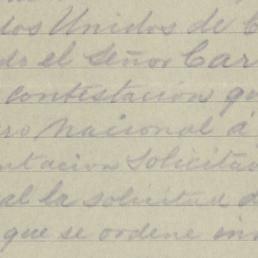 dos Unidos de C
do el Señor Car
contestación qu
ro Nacional á
ntación solicitad
al la solicitud d
que se ordene in